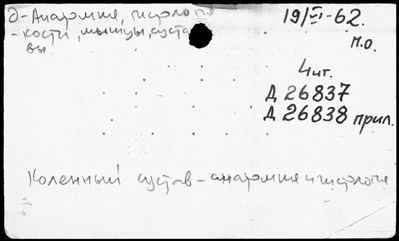 д-Анатомия, гистология
- кости, мышцы, суста
вы
19/VI-62.
М.О.
Чит.
Д 26837
Д 26838 прил.
Коленный сустав - анатомия и гистология